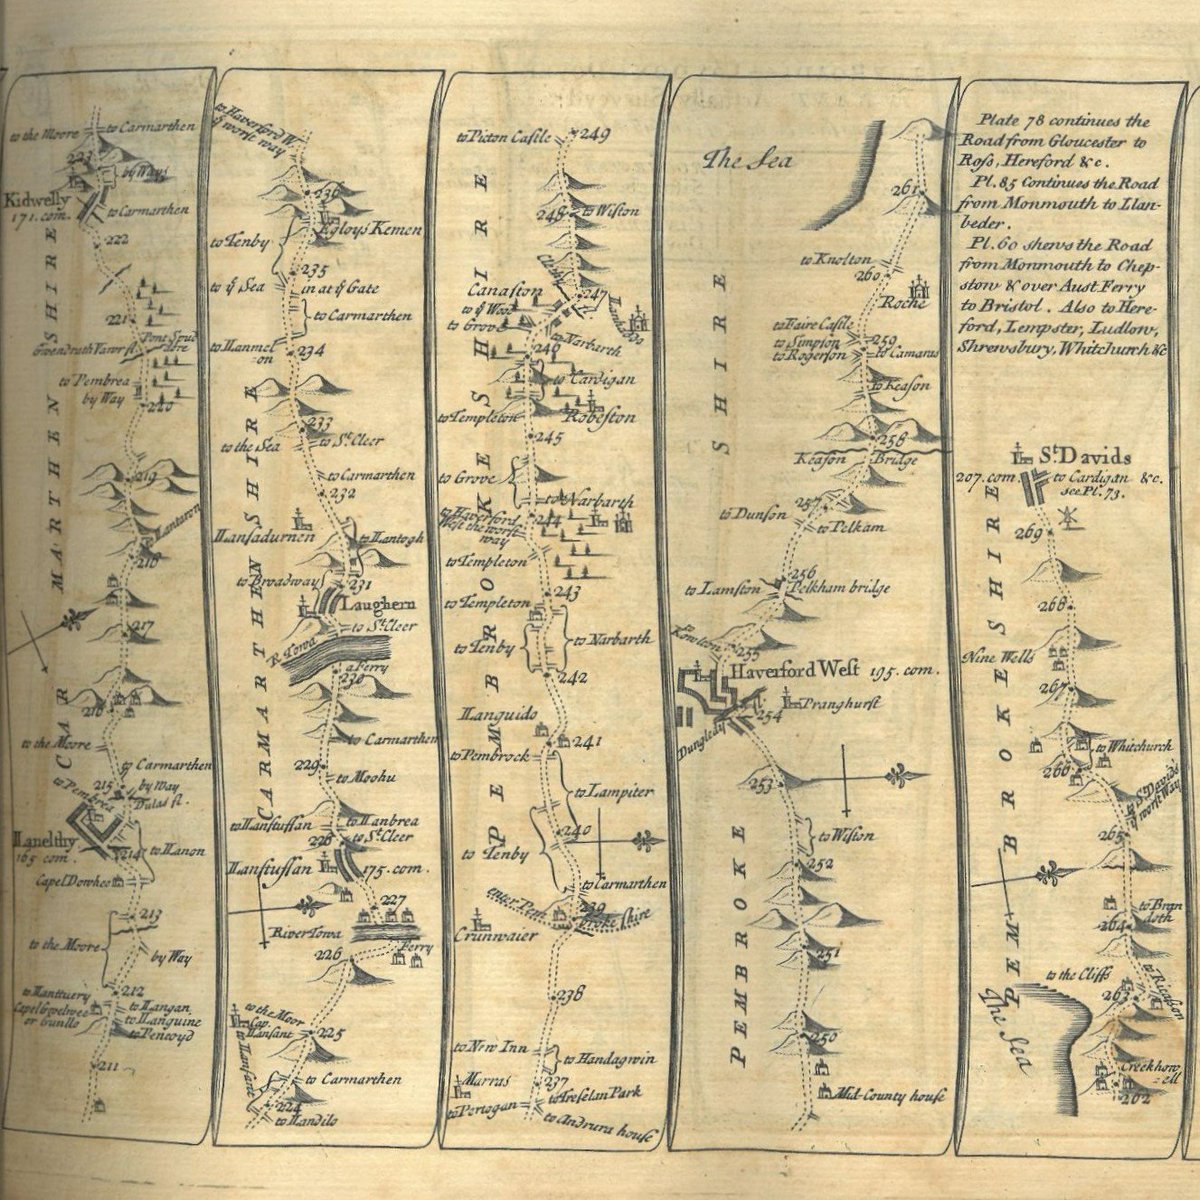 to the Moore
to Carmarthen
223
by Way
Kidwelly
171.com.
to Carmarthen
222
221
Pont Spud
dore
Gwendrath Vawr fl.
to Pembrea
by Way
220
219
Lanturon
218
217
216
to the Moore
to Carmarthen
by Way
215
to Pembrea
Dulas fl.
Llanelthy
165 com.
214
to Llanon
Capel Dewhee
213
to the Moore
by Way
212
to Llanttuery
to Llangan
to Llanguine
to Peneoyd
211
CARMARTHEN SHIRE
to Haverford W.
ye worse way
236
Egloys Kemen
to Tenby
235
in at ye Gate
to ye Sea
to Carmarthen
to Llanmel
-on
234
233
to the Sea
to St. Cleer
to Carmarthen
232
Llansadurnen
to Llantogh
to Broadway
231
Laughern
to St Cleer
R. Towa
a Ferry
230
to Carmarthen
229
to Moohu
to Llanstuffan
to Llanbrea
to St Cleer
228
Llanstuffan
175.com.
227
River Towa
Ferry
226
to the Moor
Cap.
Llansant
225
to Llansant
to Carmarthen
224
to Llandilo
CARMARTHEN SHIRE
to Picton Castle
249
248
to Wiston
Canaston
247
to ye Wood
to Grove
to Narbarth
246
to Cardigan
to Templeton
Robeston
245
to Grove
to Narbarth
to Haverford
West the worse
way
244
to Templeton
243
to Templeton
to Tenby
to Narbarth
242
Llanguido
241
to Pembrock
to Lampiter
240
to Tenby
to Carmarthen
239
enter Pem
broke shire
Crunwaier
238
to New Inn
to Handagwin
Marras
237
to Treselan Park
to Penogan
to Andrura house
PEMBROKE SHIRE
The Sea
261
to Knolton
260
Roche
to Faire Castle
to Simpson
259
to Rogerson
to Camarus
to Keason
258
Keason Bridge
257
to Dunson
to Pelkam
256
to Lamston
Pelkham bridge
to Rowton
255
Haverford West 195.com.
Pranghurst
254
Dungledy
253
to Wiston
252
251
250
Mid-County house
PEMBROKE SHIRE
Plate 78 continues the
Road from Gloucester to
Ross, Hereford &c.
Pl. 85 Continues the Road
from Monmouth to Llan-
beder.
Pl. 60 shews the Road
from Monmouth to Chep-
stow & over Aust Ferry
to Bristol. Also to Here-
ford, Lempster, Ludlow,
Shrewsbury, Whitchurch &c
St Davids
207.com.
to Cardigan &c.
see Pl. 73.
269
268
Nine Wells
267
to Whitchurch
266
to St Davids
ye worst Way
265
to Bran
doth
264
to the Cliffs
to Ricason
263
The Sea
Creekhow
=ell
262
PEMBROKE SHIRE